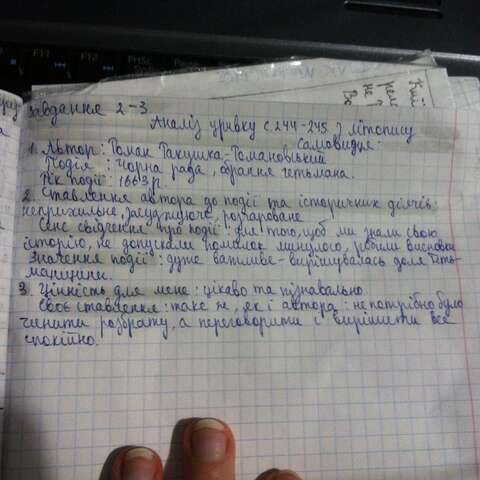 Завдання 2-3
Аналіз уривку с.244-245 з літопису
Самовидця:
1. Автор: Роман Ракушка-Романовський
Подія: Чорна рада, обрання гетьмана.
Рік події: 1663 р.
2. Ставлення автора до події та історичних діячів:
неприхильне, засуджуюче, розчароване.
Сенс свідчення про події: для того, щоб ми знали свою
історію, не допускали помилок минулого, робили висновки
Значення події: дуже важливе - вирішувалась доля Геть-
манщини.
3. Цінність для мене: цікаво та пізнавально
Своє ставлення: таке ж, як і автора: не потрібно було
чинити розбрату, а переговорити і вирішити все
спокійно.